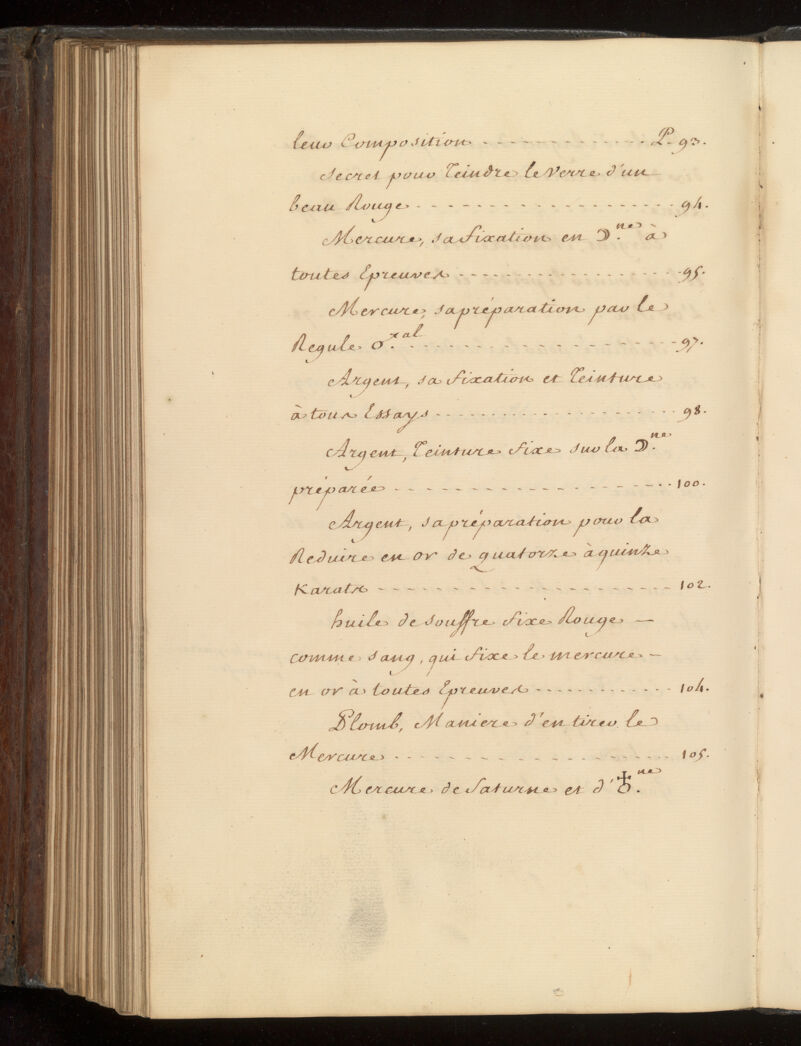 leur Composition - - - - - - - - - - - - P. 93.
Secret pour Teindre le Verre d'un
beau Rouge - - - - - - - - - - - - - - - - - - 94.
Mercure, sa fixation en ☽.ne à
toutes Epreuves - - - - - - - - - - - - - - - - 95.
Mercure, sa préparation par le
Regule ♂.xal - - - - - - - - - - - - - - - - - 97.
Argent, sa fixation et Teinture
à tous Essays - - - - - - - - - - - - - - - - - 98.
Argent, Teinture fixe sur la ☽.ne
préparée - - - - - - - - - - - - - - - - - - - 100.
Argent, sa préparation pour la
Reduire en or de quatorze à quinze
Karats - - - - - - - - - - - - - - - - - - - - 102.
huile de souffre fixe Rouge -
comme sang, qui fixe le mercure -
en or à toutes Epreuves - - - - - - - - - - 104.
Plomb, Maniere d'en tirer le
Mercure - - - - - - - - - - - - - - - - - - - 105.
Mercure de Saturne et d'♁.ne